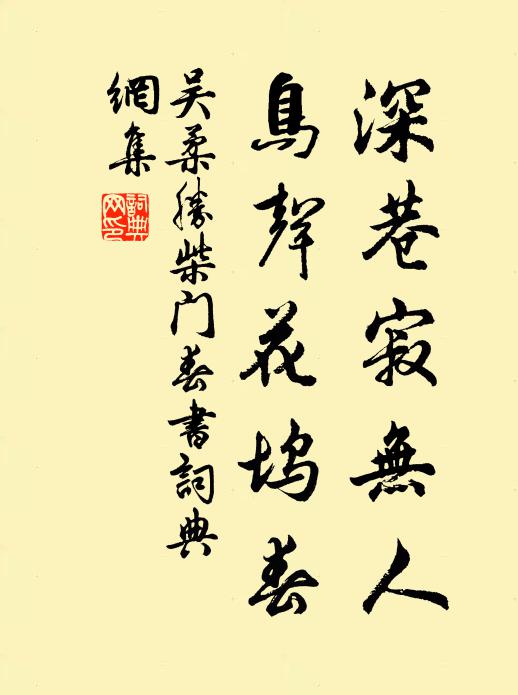 深巷寂無人
鳥聲花塢春
吴柔勝柴门春書詞典
網集
詞典
网印